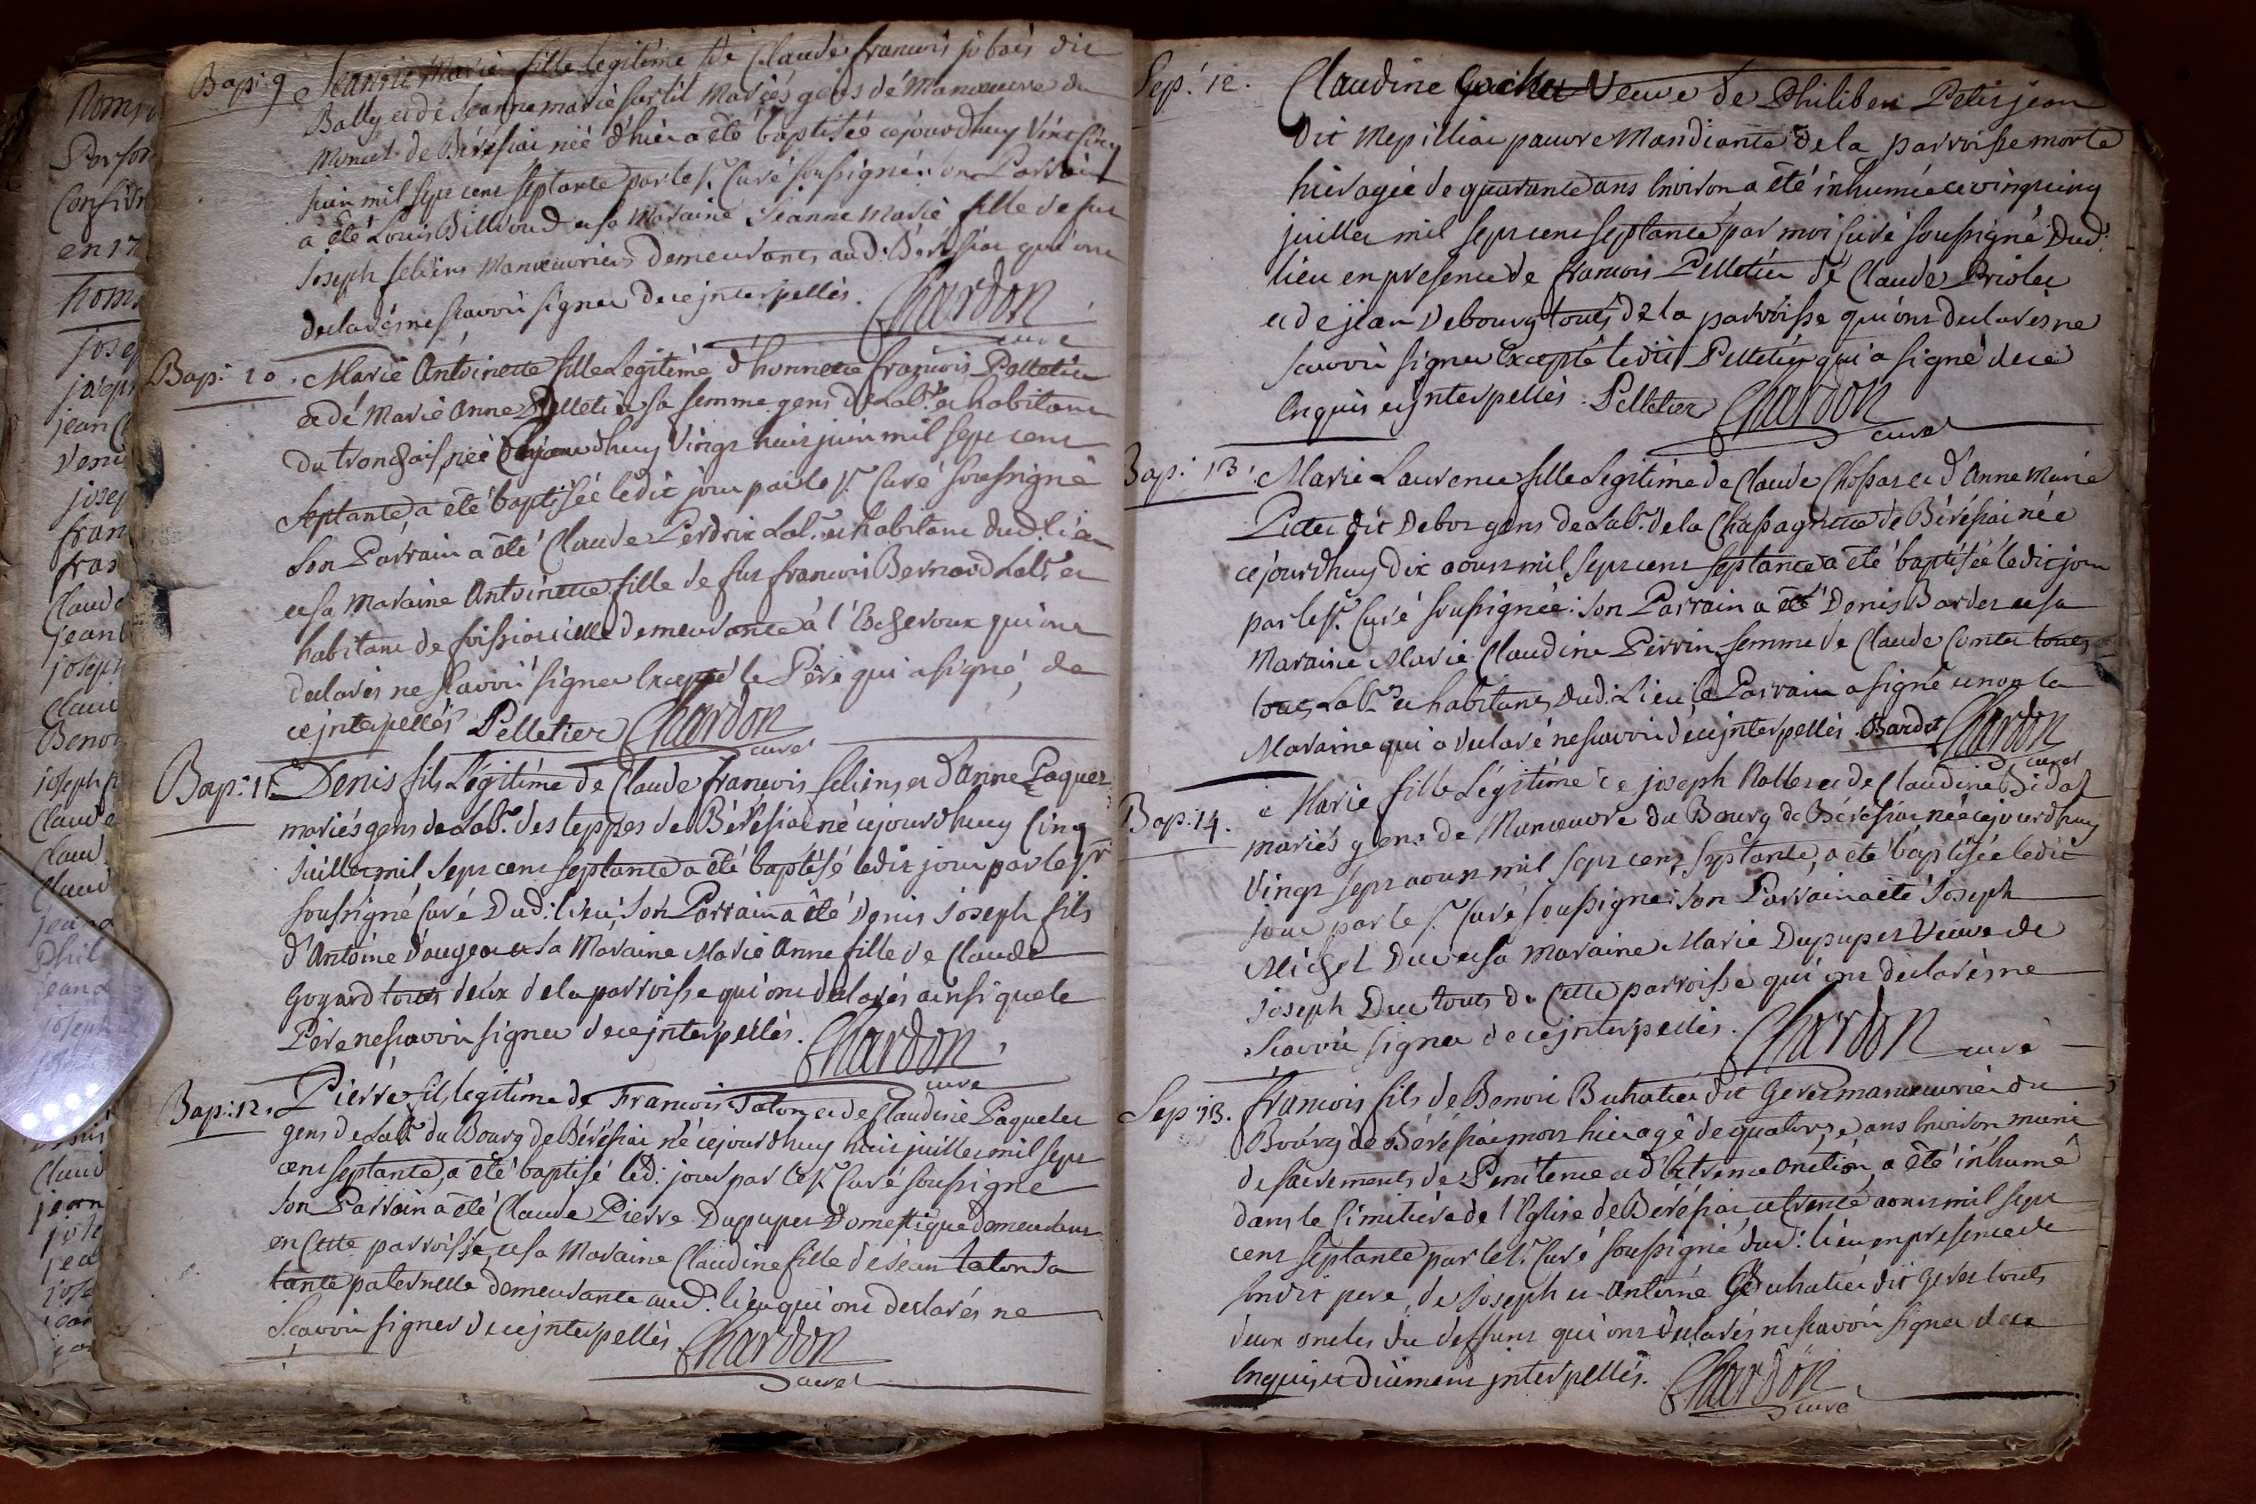 Bap: 9 Jeanne Marie fille legitime de Claude francois jobais dit
Bally et de Jeanne marie surtil Mariés gens de Manoeuvre du
Moncet de Béréfiai née d'hier a été baptisée cejourdhuy Vint Cinq
juin mil sept cent septante par le Sr. Curé soussigné: son Parrain
a été Louis Billioud et sa Maraine Jeanne Marie fille de fut
Joseph feliens Manoeuvriers demeurants aud: Béréfiai qui ont
declarés ne scavoir signer de ce jnterpellés. Chardon
curé
Bap: 10. Marie Antoinette fille Legitime d'honnette françois Pelletier
et de Marie Anne Pelletier sa femme gens de Labr. et habitant
du tronchais née Cejourdhuy Vingt huit juin mil sept cent
septante, a été baptisée ledit jour par le Sr. Curé soussigné
son Parrain a été Claude Perdrix Labr. et habitant dud: lieu
et sa Maraine Antoinette fille de fut francois Bernard Labr. et
habitant de foissiat icelle demeurante à l'Echeroux qui ont
declarés ne scavoir signer Excepté le Père qui a signé, de
ce jnterpellés Pelletier Chardon
curé
Bap: 11. Denis fils Légitime de Claude francois feliens et d'Anne Paquet
mariés gens de Labr. des teppes de Béréfiai né cejourdhuy Cinq
Juillet mil sept cent septante a été baptisé ledit jour par le Sr.
soussigné Curé Dud: lieu: son Parrain a été Denis Joseph fils
d'Antoine d'augea et sa Maraine Marie Anne fille de Claude
Goyard touts deux de la parroisse qui ont déclarés ainsi que le
Père ne scavoir signer de ce jnterpellés. Chardon
curé
Bap: 12. Pierre fils legitime de Francois Talon et de Claudine Paquelet
gens de Labr. du Bourg de Béréfiai né cejourdhuy huit juillet mil sept
cent septante, a été baptisé led: jour par le Sr. Curé soussigné
son Parrain a été Claude Pierre Dupupet Domestique demeurant
en Cette parroisse, et sa Maraine Claudine fille de Jean talon sa
tante paternelle demeurante aud: lieu qui ont declarés ne
Scavoir signer de ce jnterpellés Chardon
curé
Sep: 12. Claudine Gachet Veuve de Philibert Petitjean
dit Mepilliat pauvre Mandiante de la parroisse morte
hier agée de quarante ans Environ a été inhumée ce vingt cinq
juillet mil sept cent septante par moi Curé soussigné Dud:
lieu en presence de francois Pelletier de Claude Briolet
et de jean Debourg touts de la parroisse qui ont declarés ne
scavoir signer Excepté ledit Pelletier qui a signé de ce
Enquis et jnterpellés. Pelletier Chardon
curé
Bap: 13. Marie Laurence fille Legitime de Claude Chossat et d'Anne Marie
Pitet dit Debor gens de Labr. de la Chapagnette de Béréfiai née
cejourdhuy dix aoust mil sept cent septante a été baptisée ledit jour
par le Sr. Curé soussigné: son Parrain a été Denis Bardet et sa
Maraine Marie Claudine Perrin femme de Claude Comtet touts
touts Labrs. et habitants Dud: Lieu, le Parrain a signé et non la
Maraine qui a declaré ne scavoir de ce jnterpellés. Bardet Chardon
curé
Bap: 14. Marie fille Légitime de joseph Rollet et de Claudine Bidat
mariés gens de Manoeuvre du Bourg de Béréfiai née cejourdhuy
Vingt sept aoust mil sept cent septante, a été baptisée ledit
jour par le Sr. Curé soussigné: son Parrain a été Joseph
Michel Duc et sa maraine Marie Dupupet Veuve de
Joseph Duc touts de Cette parroisse qui ont declarés ne
Scavoir signer de ce jnterpellés. Chardon
curé
Sep: 13. francois fils de Benoit Buhatier dit Geret manoeuvrier du
Bourg de Béréfiai mort hier agé de quatorze ans Environ muni
des sacrements de Penitence et d'Extreme onction, a été inhumé
dans le Cimitière de l'Eglise de Béréfiai ce trente aoust mil sept
cent septante par le Sr. Curé soussigné dud: lieu en presence de
sondit pere, de Joseph et Antoine Buhatier dit Geret touts
deux oncles du deffunt qui ont declarés ne scavoir signer de ce
Enquis et dûement jnterpellés. Chardon
curé